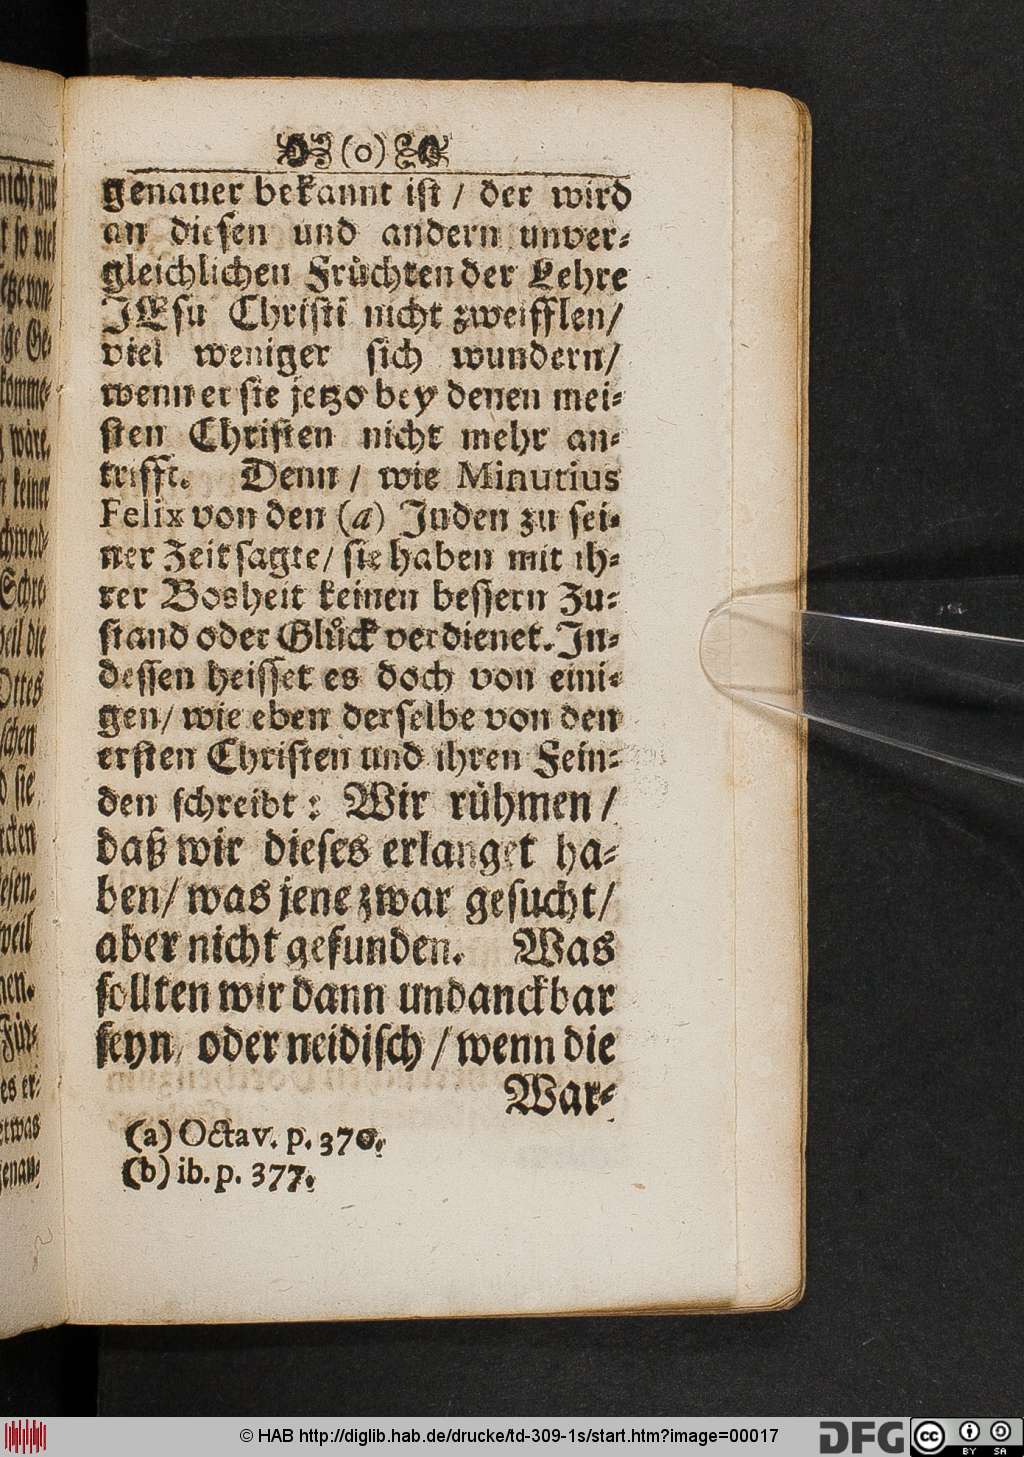 (o)
genauer bekannt ist / der wird
an diesen und andern unver-
gleichlichen Früchten der Lehre
JEsu Christi nicht zweifflen/
viel weniger sich wundern/
wenn er sie jetzo bey denen mei-
sten Christen nicht mehr an-
trifft. Denn / wie Minutius
Felix von den (a) Juden zu sei-
ner Zeit sagte/ sie haben mit ih-
rer Bosheit keinen bessern Zu-
stand oder Glück verdienet. In-
dessen heisset es doch von eini-
gen/ wie eben derselbe von den
ersten Christen und ihren Fein-
den schreibt: Wir rühmen/
daß wir dieses erlanget ha-
ben/ was jene zwar gesucht/
aber nicht gefunden. Was
sollten wir dann undanckbar
seyn, oder neidisch / wenn die
War-
(a) Octav. p. 370.
(b) ib. p. 377.
nicht zur
so viel
ige Ge-
komme-
wäre.
keiner
Schre-
weil die
Ottes
sie
weil
Für-
es er-
etwas
genau-
© HAB http://diglib.hab.de/drucke/td-309-1s/start.htm?image=00017
DFG
cc
BY SA